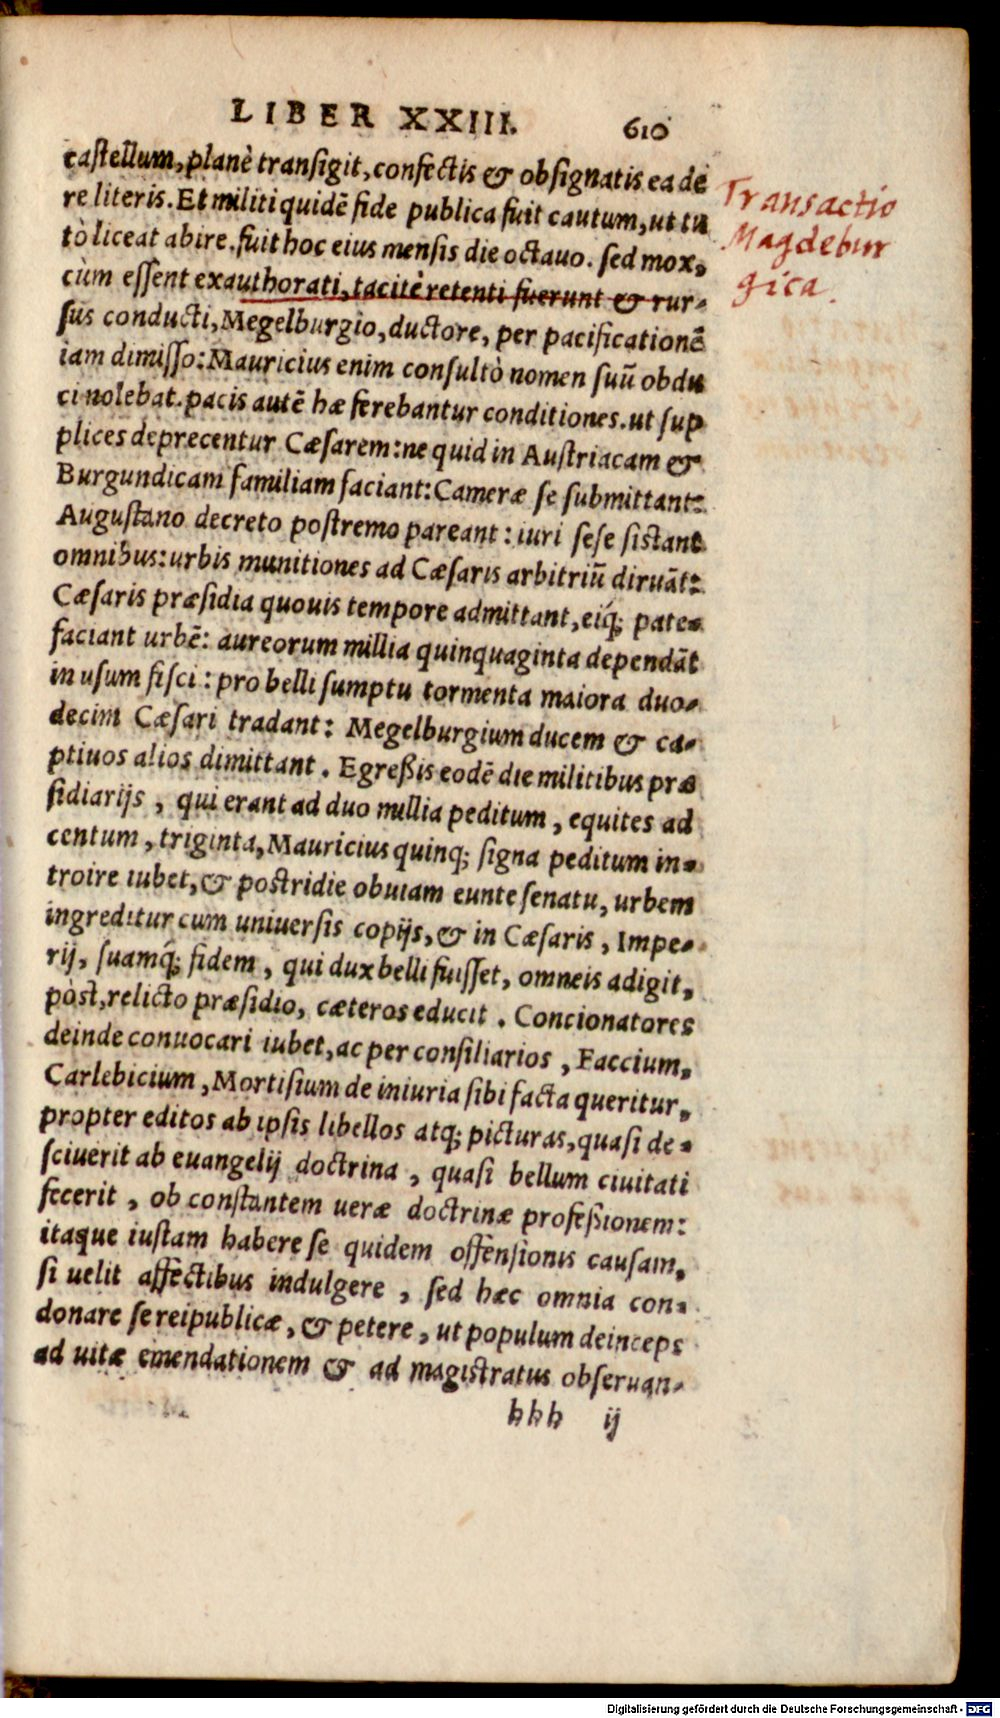 LIBER XXIII. 610
castellum, planè transigit, confectis & obsignatis ea de
re literis. Et militi quidē fide publica fuit cautum, ut tu
tò liceat abire. fuit hoc eius mensis die octauo. sed mox,
cùm essent exauthorati, tacitè retenti fuerunt & rur-
sus conducti, Megelburgio, ductore, per pacificationē
iam dimisso: Mauricius enim consultò nomen suū obdu
ci nolebat. pacis autē hæ ferebantur conditiones. ut sup
plices deprecentur Cæsarem: ne quid in Austriacam &
Burgundicam familiam faciant: Cameræ se submittant:
Augustano decreto postremo pareant: iuri sese sistant
omnibus: urbis munitiones ad Cæsaris arbitriū diruāt:
Cæsaris præsidia quouis tempore admittant, eiq́; pate-
faciant urbē: aureorum millia quinquaginta dependāt
in usum fisci: pro belli sumptu tormenta maiora duo-
decim Cæsari tradant: Megelburgium ducem & ca-
ptiuos alios dimittant. Egreßis eodē die militibus præ
sidiarijs, qui erant ad duo millia peditum, equites ad
centum, triginta, Mauricius quinq; signa peditum in-
troire iubet, & postridie obuiam eunte senatu, urbem
ingreditur cum uniuersis copijs, & in Cæsaris, Impe-
rij, suamq́; fidem, qui dux belli fuisset, omneis adigit,
pòst, relicto præsidio, cæteros educit. Concionatores
deinde conuocari iubet, ac per consiliarios, Faccium,
Carlebicium, Mortisium de iniuria sibi facta queritur,
propter editos ab ipsis libellos atq; picturas, quasi de-
sciuerit ab euangelij doctrina, quasi bellum ciuitati
fecerit, ob constantem ueræ doctrinæ profeßionem:
itaque iustam habere se quidem offensionis causam,
si uelit affectibus indulgere, sed hæc omnia con-
donare se reipublicæ, & petere, ut populum deinceps
ad uitæ emendationem & ad magistratus obseruan-
hhh ij
Transactio
Magdebur
gica.
Digitalisierung gefördert durch die Deutsche Forschungsgemeinschaft - DFG